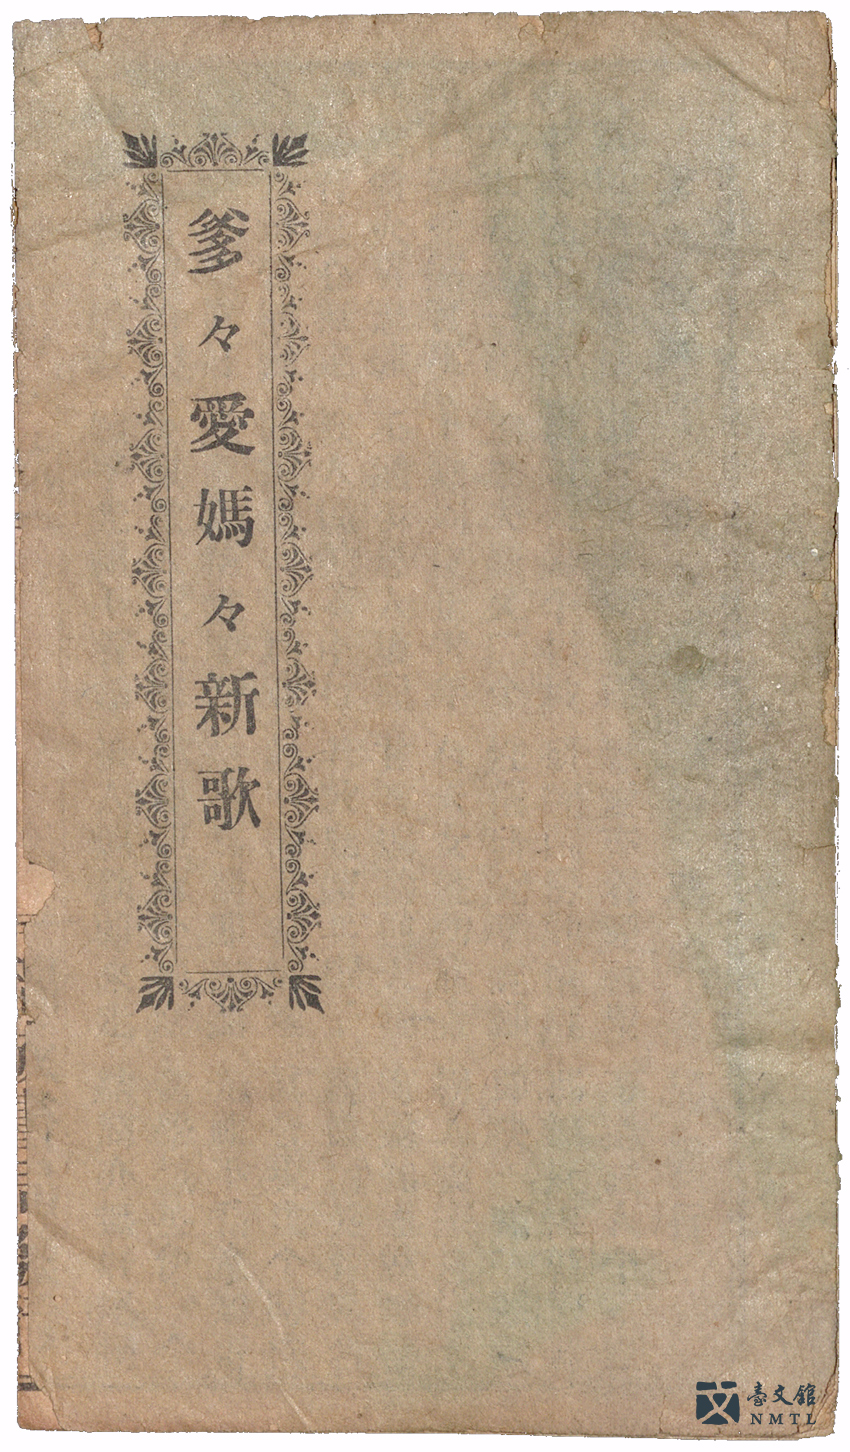 爹々愛媽々新歌
臺文館
NMTL